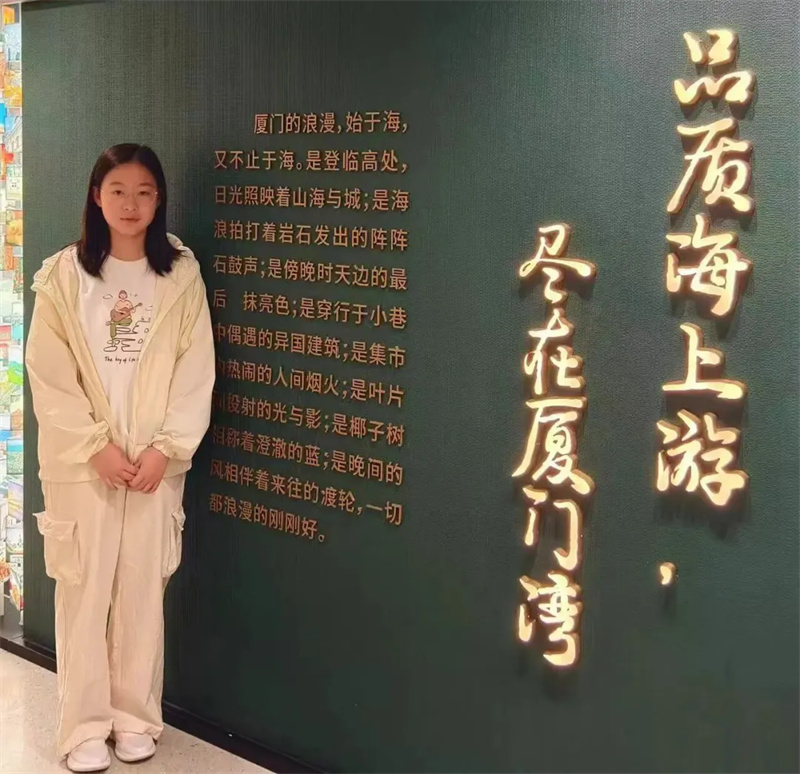 厦门的浪漫,始于海,
又不止于海。是登临高处,
日光照映着山海与城;是海
浪拍打着岩石发出的阵阵
石鼓声;是傍晚时天边的最
后 抹亮色;是穿行于小巷
中偶遇的异国建筑;是集市
热闹的人间烟火;是叶片
投射的光与影;是椰子树
相称着澄澈的蓝;是晚间的
风相伴着来往的渡轮,一切
都浪漫的刚刚好。
品质海上游,
尽在厦门湾